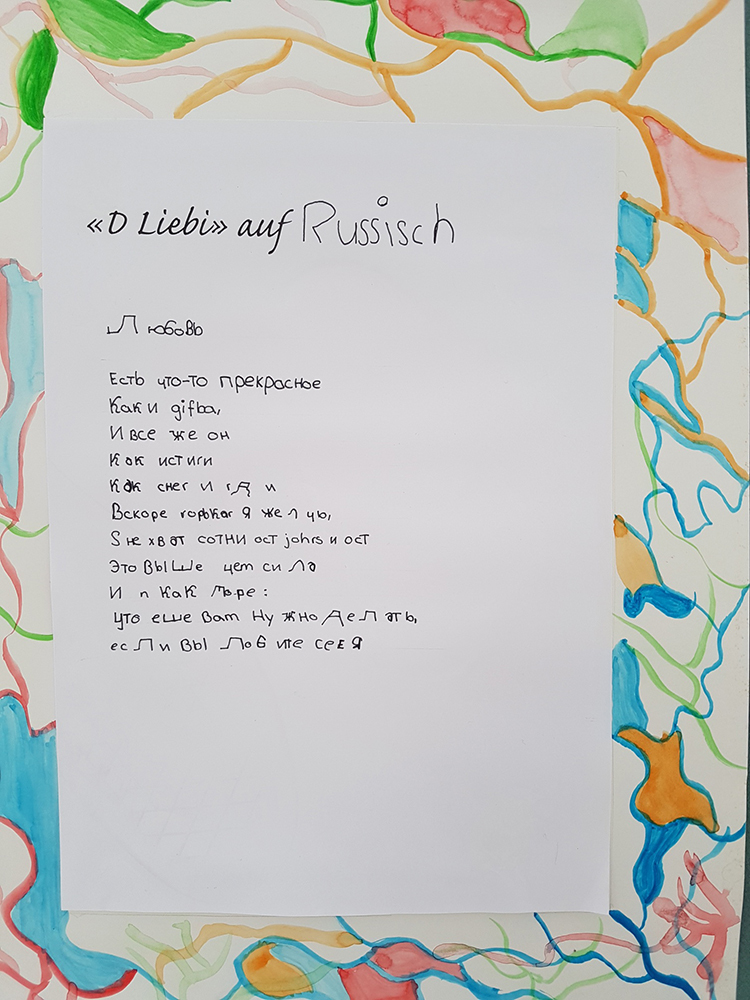 «D Liebi» auf Russisch
Любовь
Есть что-то прекрасное
Как и gifba,
И все же он
Как истиги
Как снег и
Вскоре я
S не хват сотни ост johrs и ост
Это выше чем сила
И п как море:
что еше вам нужно делать,
если вы